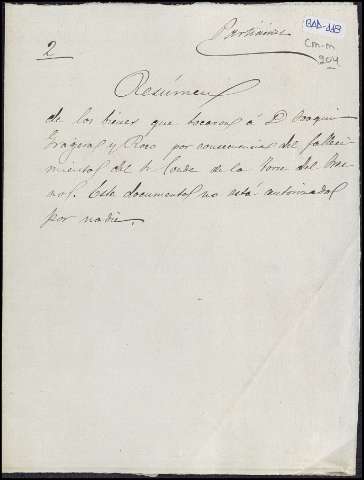 Particiones
BAD-118
Cm-m
204
2
Resúmen
de los bienes que tocaron á D. Joaquin
Grageras y Roco por consecuencia del falleci-
miento del Sr. Conde de la Torre del Fres-
no. Este documento no está autorizado
por nadie.